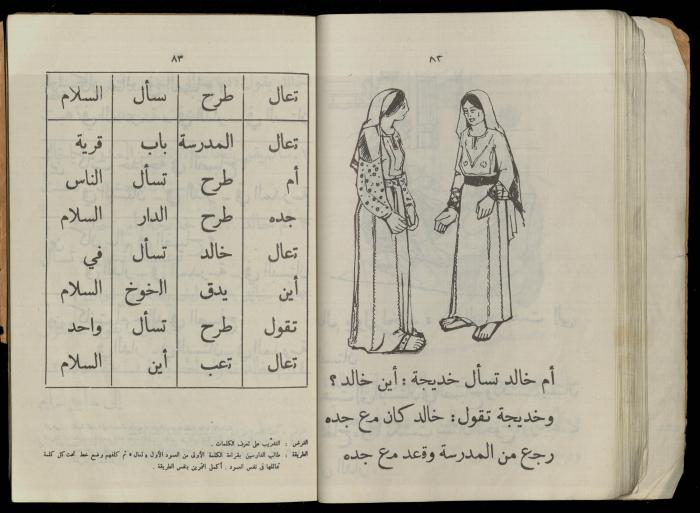 ٨٢
أم خالد تسأل خديجة : أين خالد ؟
وخديجة تقول : خالد كان مع جده
رجع من المدرسة وقعد مع جده
٨٣
تعال طرح تسأل السلام
تعال المدرسة باب قرية
أم طرح تسأل الناس
جده طرح الدار السلام
تعال خالد تسأل في
أين يدق الخوخ السلام
تقول طرح تسأل واحد
تعال تعب أين السلام
الغرض : التدريب على تعرف الكلمات .
الطريقة : طالب الدارسين بقراءة الكلمة الأولى من العمود الأول « تعال » ثم كلفهم وضع خط تحت كل كلمة
تماثلها في نفس العمود . أكمل التمرين بنفس الطريقة .